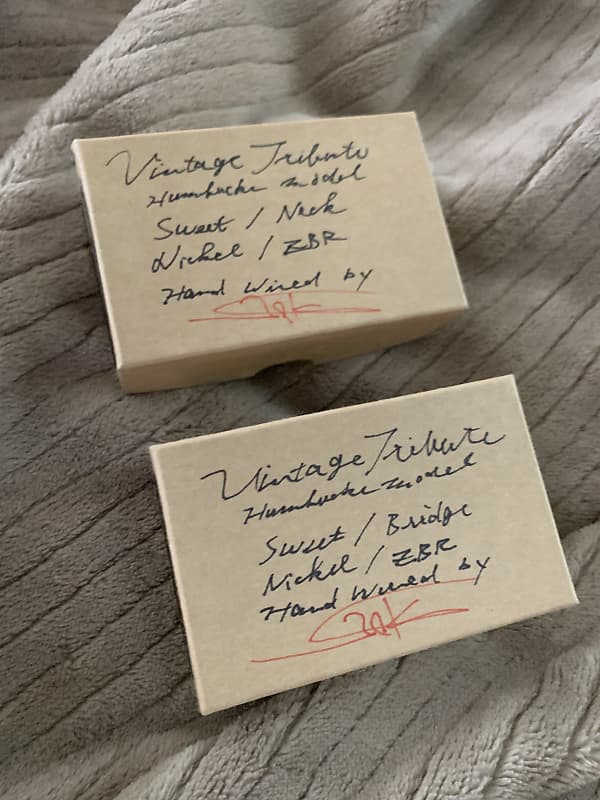 Vintage Tribute
Humbucker model
Sweet / Neck
Nickel / ZBR
Hand Wired by
Vintage Tribute
Humbucker model
Sweet / Bridge
Nickel / ZBR
Hand Wired by